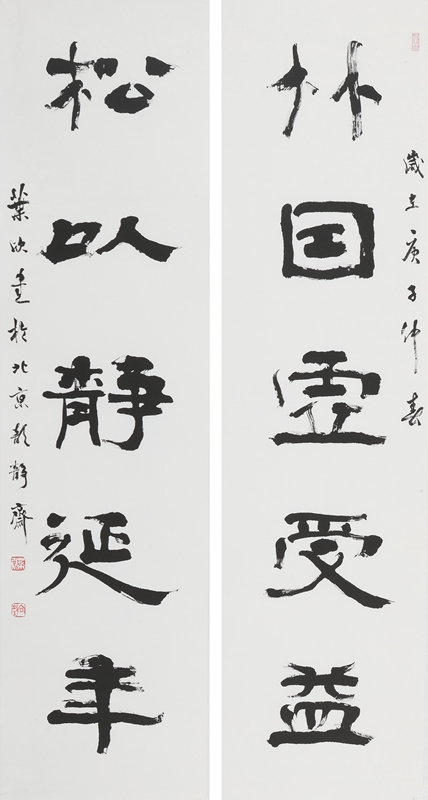 歲在庚子仲春
竹因虛受益
松以靜延年
葉欣書於北京韵靜齋